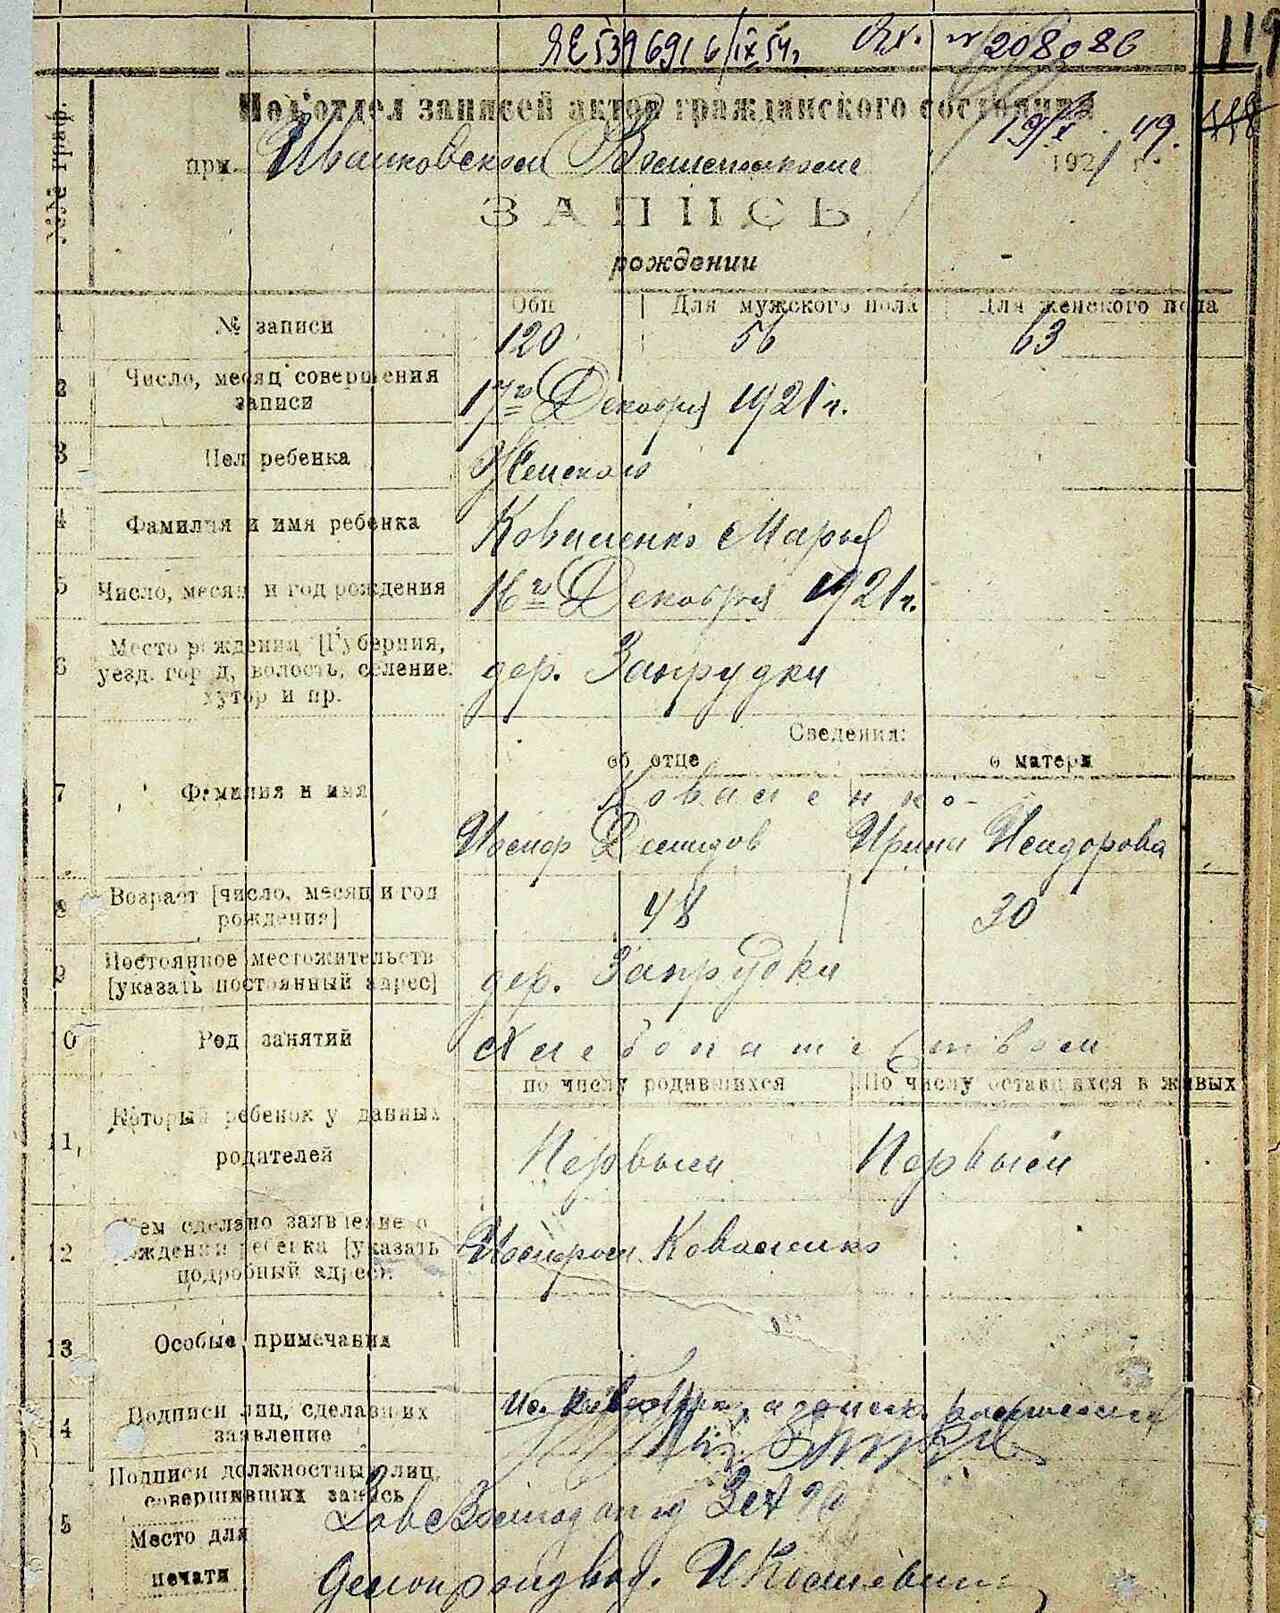 ЯЕ 539691 6/IX 54г Вх. № 208086
119
Подотдел записей актов гражданского состояния
19/X 49. 118
при Ивановском Волисполкоме 1921 г.
ЗАПИСЬ
рождении
№№ граф.
Общ Для мужского пола Для женского пола
1 № записи 120 56 63
2 Число, месяц совершения
записи 17го Декабря 1921 г.
3 Пол ребенка Женского
4 Фамилия и имя ребенка Коваленко Марья
5 Число, месяц и год рождения 16го Декабря 1921 г.
6 Место рождения [Губерния,
уезд. город, волость, селение
хутор и пр. дер. Запрудки
Сведения:
об отце о матери
7 Фамилия и имя Коваленко
Иосиф Демидов Ирина Исидорова
8 Возраст [число, месяц и год
рождения] 48 30
9 Постоянное местожительств
[указать постоянный адрес] дер. Запрудки
10 Род занятий Хлебопашеством
по числу родившихся По числу оставшихся в живых
11, Который ребенок у данных
родителей Первый Первый
12 Кем сделано заявление о
рождении ребенка [указать
подробный адрес]. Иосифом Коваленко
13 Особые примечания
14 Подписи лиц, сделавших
заявление
Подписи должностных лиц,
совершивших запись
15 Место для
печати Делопроизвод.